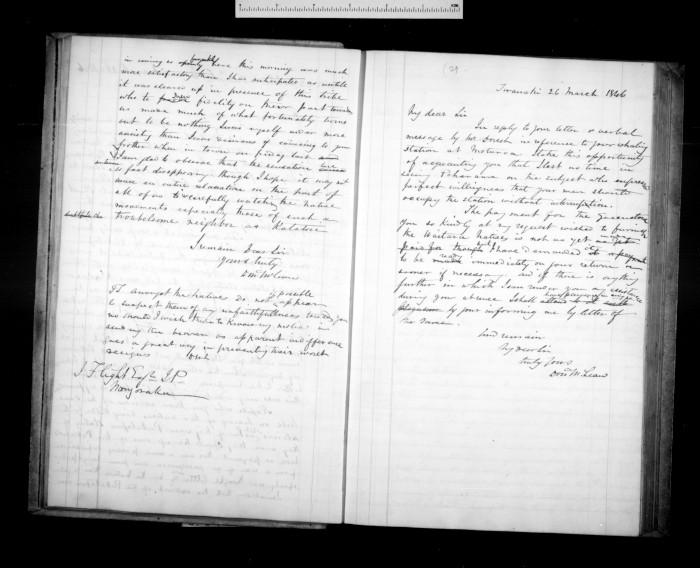 in coming so openly here this morning was much
more satisfactory than I had anticipated as until
it was cleared up in presence of this tribe
who to fidelity on their part towards
us made much of what fortunately turns
out to be nothing. I was myself under more
anxiety than I was desirous of causing to you
further when in town on friday last
I am glad to observe that the sensation
is fast disappearing though I hope it may not
cause an entire relaxation on the part of
all of us to carefully watching the native
movements especially those of such a
troublesome neighbor as Katatore
I remain Dear Sir
Yours truly
D McLean
P.S. Amongst the Natives do not if possible appear
to suspect them of any unfaithfulness towards you
nor should I wish them to know my motive in
sending this bearer as apparent indifference
goes a great way in preventing their worst
designs DMcL
J. Flight Esqre J.P.
(29
Taranaki 26 March 1846
My dear Sir
In reply to your letter & verbal
message by Mr Dorset in reference to your whaling
station at Moturoa I take this opportunity
of acquainting you that I lost no time in
seeing on the subject who expressed
perfect willingness that your men should
occupy the station without interruption.
The payment for the
you so kindly at my request wished to furnish
the Waitara Natives is not as yet
paid for though I have demanded it
to be ready immediately on your return or
sooner if necessary. And if there is anything
further in which I can render you any assistance
during your absence I shall
by your informing me by letter of
the same.
And remain
My dear Sir
truly yours
Don McLean